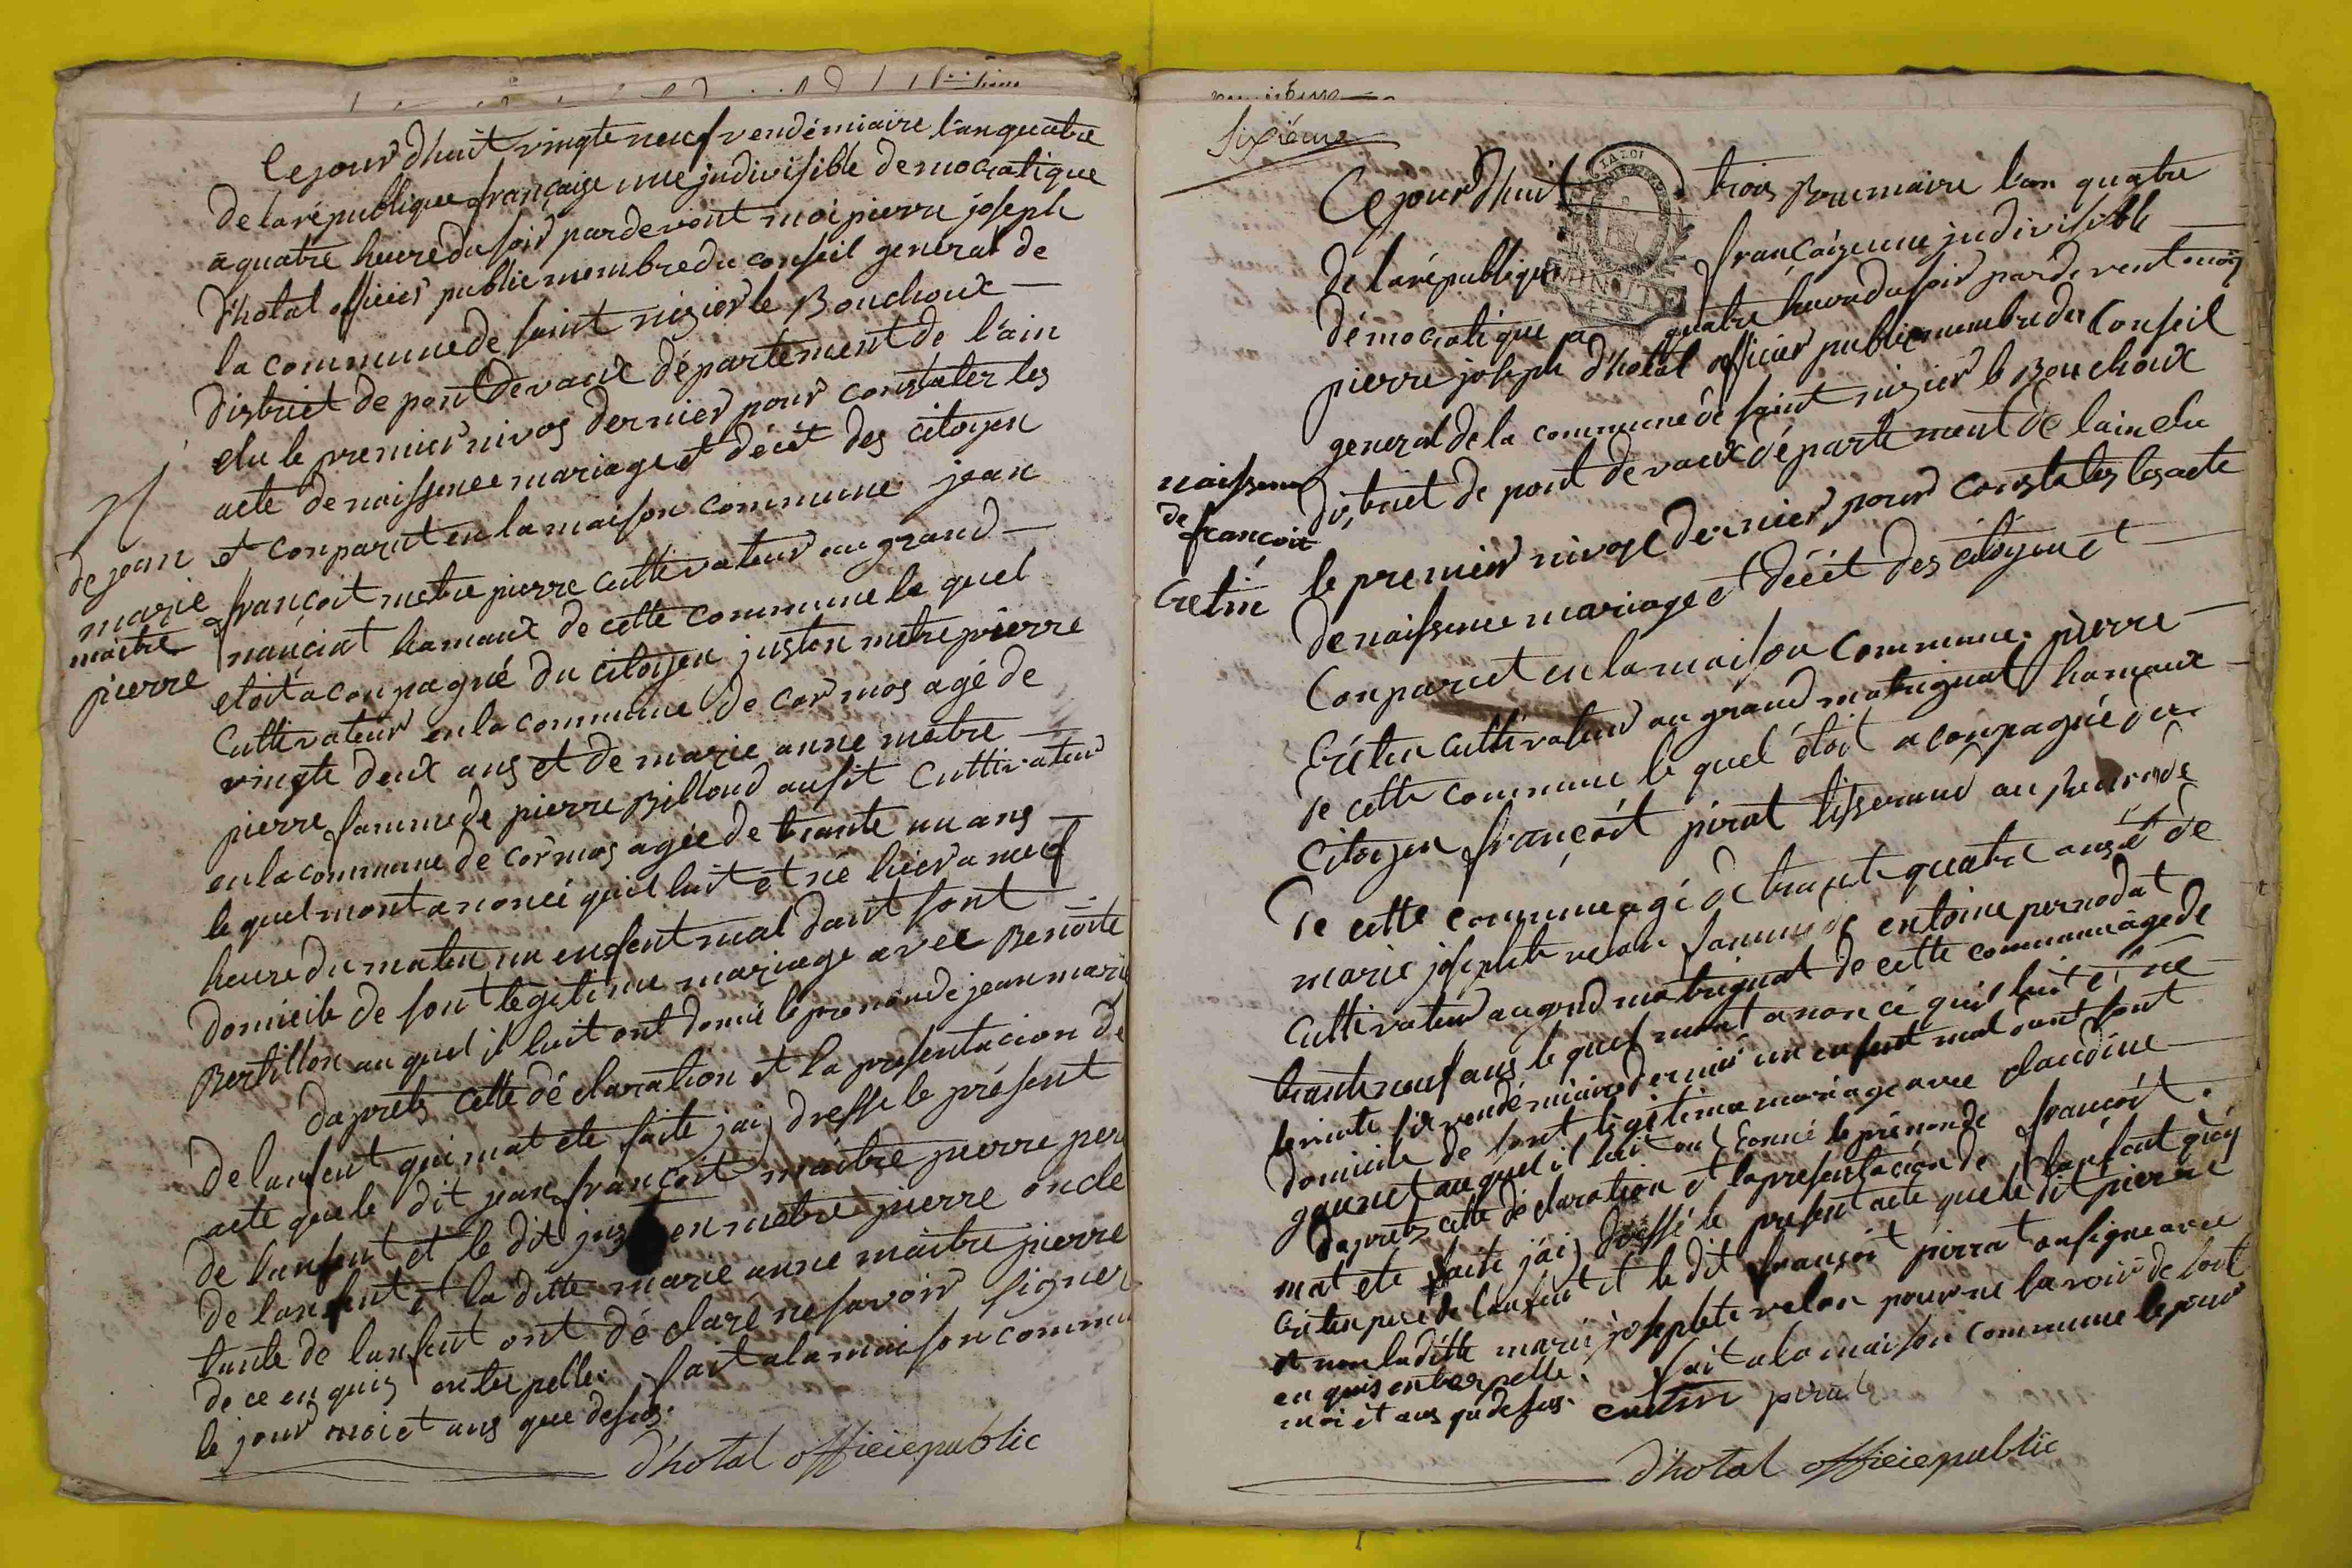 Cejourd'huit vingte neuf vendémiaire l'an quatre
de la république française une jndivisible democratique
a quatre heure du soir pardevent moi pierre joseph
d'hotal officier public membre du conseil general de
la commune de saint nisier le Bouchoux
district de pont devaux département de l'ain
elu le premier nivos dernier pour constater les
acte de naissence mariage et décét des citoyen
et conparut en la maison commune jean
françoit metre pierre cultivateur au grand
hamaux de cette commune le quel
etoit aconpagné du citoyen juston metre pierre
Cultivateur en la commune de cormos agé de
vingte deux ans et de marie anne metre
pierre famme de pierre Billoud ausit Cultivateur
en la commune de cormos agée de trante un ans
le quel mont anoncé quil luit et né hier a neuf
heure du maten un enfent mal dant sont
domicile de sont legitime mariage avec Benoite
Bertillon au quel il luit ont donné le prenon de jean marie
daprets cette déclaration et la presentacion de
de lanfent qui mat ete faite jaij dresse le présent
acte que le dit jean françoit maitre pierre per
de lanfent et le dit en metre pierre oncle
de lanfent et la ditte marie anne maitre pierre
tante de lanfent ont déclaré ne savoir signer
de ce en quis enter pelle. fait a la maison commu
le jour moi et ans que desus.
d'hotal officiepublic
de jean
marie
maitre
pierre
Sixiéme
LA LOI
Cejourd'huit trois Brumaire l'an quatre
de la république françaize une jndivisible
démocratique a quatre heure du soir pardevent moij
pierre joseph d'hotal officier public membre du Conseil
general de la commune de saint nisier le Bouchoux
district de pont de vaux département de lain elu
le premier nivose dernier pour constater les acte
de naissence mariage et décét des citoyen et
Conparut en la maison Commune pierre
Crétin cultivateur au grand matrignat hamaux
de cette commune le quel étoit aconpagné du
Citoyen françoit pirat tisserand au
de cette commune agé de trante quatre ans et de
marie josephte velon famme de entoine pernodat
Cultivateur au grand matrignat de cette commune agé de
trante neuf ans le quel mont anoncé quil luit et né
le vinte six vendémiaire dernier un enfent mal dant sont
domicile de sont légitime mariage avec claudine
au quel il luit ont donné le prénon de françoit.
daprets cette déclaration et la presentacion de lanfent quij
mat ete faite jaij dressé le present acte que le dit pierre
Crétin pere de lanfent et le dit françoit pirrat onsigne avec
et non laditte marie josephte velon pour ne savoir de sont
en quis enter pelle. fait a la maison commune le jour
moi et ans qu desus. cretin pirat
d'hotal officiepublic
naissence
de
françoit
Cretin